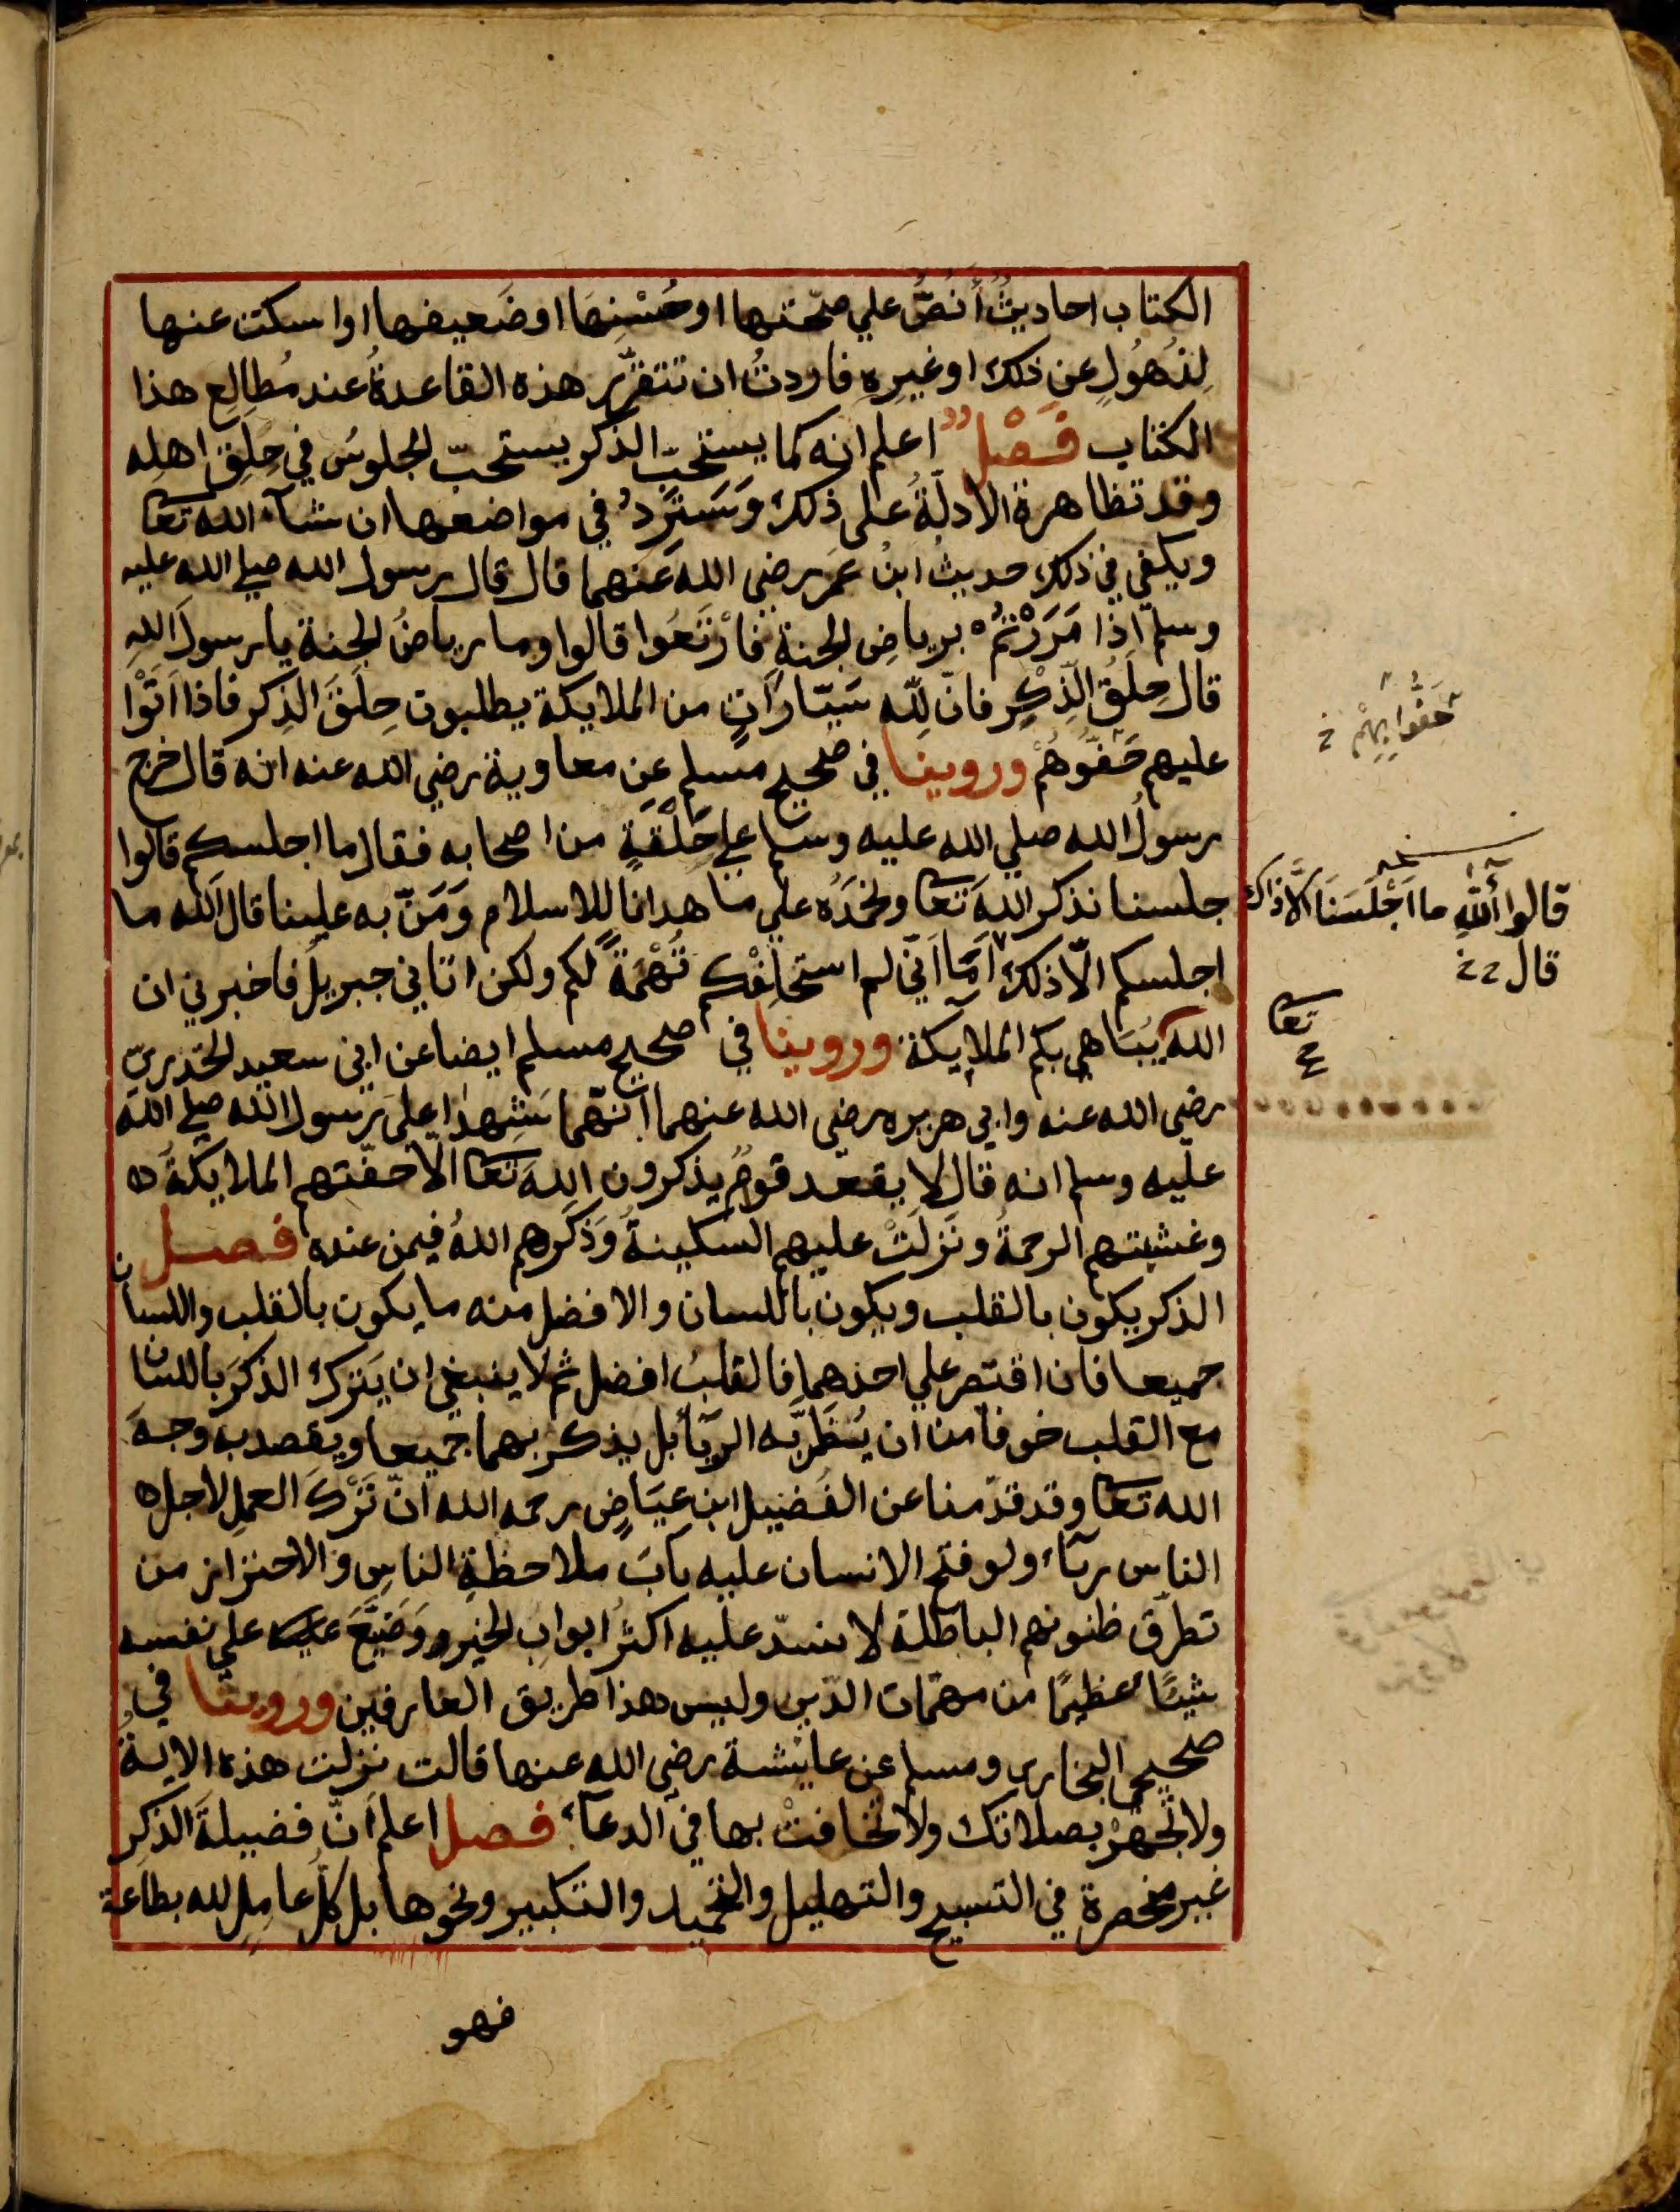 الكتاب احاديثُ أَنُصُّ علي صحّتها او حُسْنِهَا او ضَعيفها او اسكت عنها
لِذُهُولٍ عن ذلك او غيرِهِ فاردتُ ان تتقرّر هذه القاعدةُ عند مُطالِع هذا
الكتاب فَصْل اعلم انه كما يستحبّ الذكر يستحبّ الجلوسُ في حِلَقِ اهلِه
وقد تظاهرة الادلّةُ على ذلك وَسَتَرِدُ في مواضعها ان شآء الله تعا
ويكفي في ذلك حديثُ ابنُ عُمَر رضي الله عَنهما قال قال رسول الله صلي الله عليه
وسلم اذا مَرَرْتُمْ برياضِ الجنةِ فَارْتَعُوا قالوا وما رياضُ الجنة يا رسولَ اللهِ
قال حِلَقُ الذِّكْرِ فانّ لِلّٰه سَيّاراتٍ من الملايكة يطلبون حِلَقَ الذِكر فاذا اَتَوْا
عليهم حَفّوُهُمْ وروينا في صحيح مسلم عن معاوية رضي الله عنه انه قال خرج
رسولُ الله صلي الله عليه وسلم علي حَلْقَةٍ من اصحابه فقال ما اجلسكم قالوا
جلسنا نذكر اللهَ تعا ونحمَدُه علي ما هدانا للاسلام وَمَنّ به علينا قال آلله ما
اجلسكم الّا ذلك اَمَا اَنّي لم استحلِفْكم تُهْمَةً لكم ولكن اتاني جبريلُ فاخبرني ان
الله يُبَاهي بكم الملايكة وروينا في صحيح مسلم ايضا عن ابي سعيد الخدريّ
رضي الله عنه وابي هريره رضي الله عنهما انّهما شَهِدا علي رسول الله صلي الله
عليه وسلم انه قال لا يقعد قومٌ يذكرون اللهَ تعا الا حفّتهم الملايكةُ
وغشيتهم الرحمةُ ونَزلَتْ عليهم السكينةُ وَذَكَرهم اللهُ فيمن عنده فصل
الذكر يكون بالقلب ويكون باللسان والافضل منه ما يكون بالقلب واللسان
جميعا فان اقتصر علي احدهما فالقلبُ افضل ثم لا ينبغي ان يَترك الذكرَ باللسان
مع القلب خوفا من ان يُظَنّ به الريآ بل يذكر بهما جميعا ويقصد به وجهَ
الله تعا وقد قدّمنا عن الفُضيل ابن عيَاضٍ رحمه الله انّ تَرْكَ العمل لاجل
الناس ريآء ولو فتح الانسان عليه بابَ ملاحظةِ الناسِ والاحتراز من
تطرّق ظنونهم الباطلة لانسدّ عليه اكثرُ ابوابِ الخير وَضَيَّعَ علي نفسه
شيئًا عظيمًا من مهمّات الدّين وليس هذا طريق العارفين وروينا في
صحيحي البخاري ومسلم عن عايشة رضي الله عنها قالت نزلت هذه الايةُ
ولا تجهرْ بصلاتك ولا تخافتْ بها في الدعآء فصل اعلم اَنّ فضيلةَ الذكر
غير منحصرة في التسبيح والتهليل والتحميد والتكبير ونحوها بل كلُّ عامِلٍ لله بطاعة
فهو
حَفُّوا بِهِمْ
قالوا آللهِ ما اَجْلَسَنَا الَّا ذاك
قال
تعا